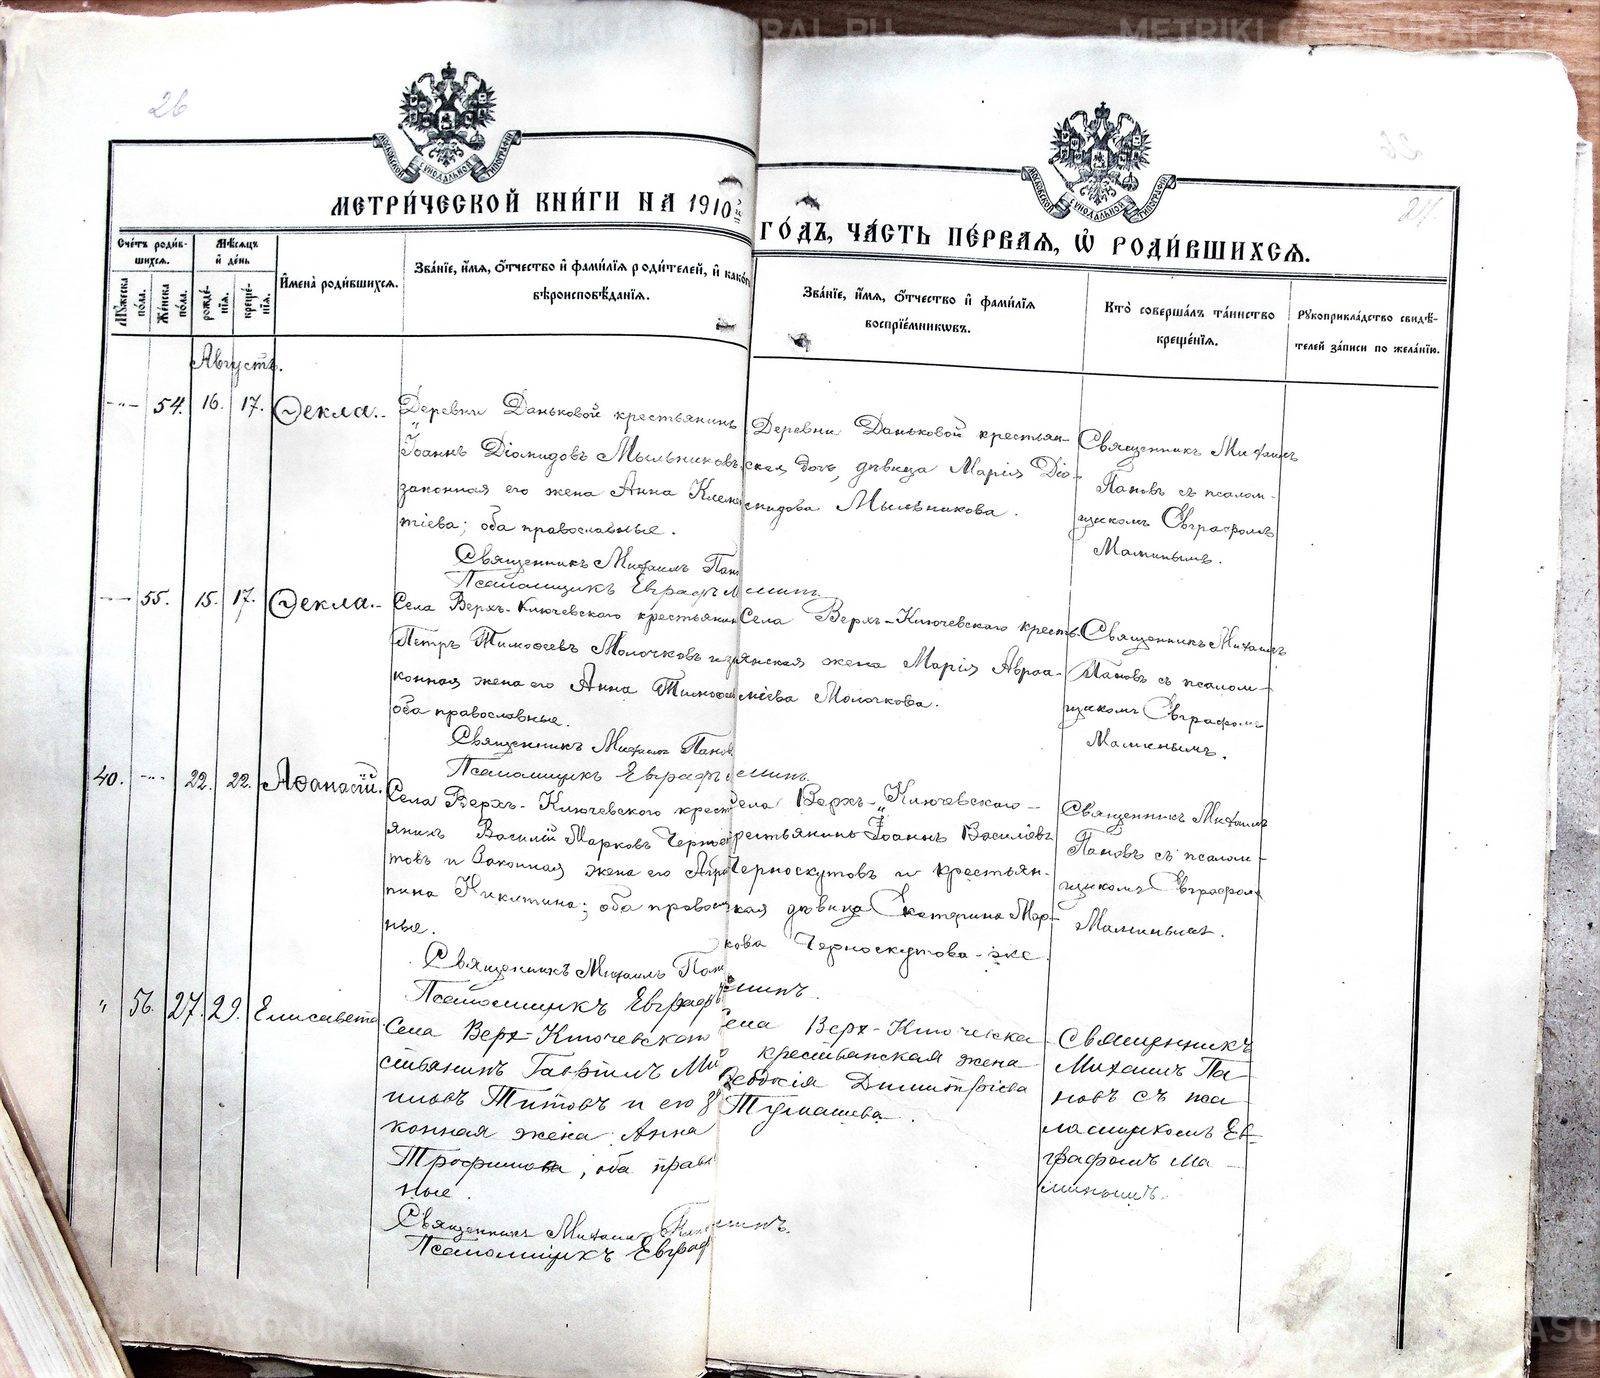 METRIKI.GASO-URAL.RU
METRIKI.GASO-URAL.RU
26
МОСКОВСКОЙ СИНОДАЛЬНОЙ ТИПОГРАФІИ
МОСКОВСКОЙ СИНОДАЛЬНОЙ ТИПОГРАФІИ
МЕТРИ́ЧЕСКОЙ КНИ́ГИ НА 1910й ГО́ДЪ, ЧА́СТЬ ПЕ́РВАЯ, Ѡ҆ РОДИ́ВШИХСЯ.
Сче́тъ роди́в-
шихся.
Мѣ́сяцъ
и҆ де́нь
Мꙋ́жеска
по́ла.
Же́нска
по́ла.
рожде́-
нїя.
креще́-
нїя.
И҆мена̀ роди́вшихся.
Зва́нїе, и҆́мя, ѻ҆́тчество и҆ фами́лїя роди́телей, и҆ како́г
вѣроисповѣ́данїя.
Зва́нїе, и҆́мя, ѻ҆́тчество и҆ фами́лїя
воспрїе́мникѡвъ.
Кто̀ соверша́лъ та́инство
креще́нїя.
Рꙋкоприкла́дство свидѣ́-
телей за́писи по жела́нїю.
Августъ.
54. 16. 17. Ѳекла.
Деревни Даньковой крестьянинъ
Іоаннъ Діомидовъ Мыльниковъ,
законная его жена Анна Клемен
тіева; оба православные.
Священникъ Михаилъ Пан
Псаломщикъ Евграфъ М
Деревни Даньковой крестьян-
ская дочь, дѣвица Марія Діо-
мидова Мыльникова.
минъ.
Священникъ Михаилъ
Пановъ съ псалом-
щикомъ Евграфомъ
Маминымъ.
55. 15. 17. Ѳекла.
Села Верхъ-Ключевского крестьянин
Петръ Тимофеевъ Молочковъ и з
конная жена его Анна Тимофе
оба православные.
Священникъ Михаилъ Панов
Псаломщикъ Евграфъ
Села Верхъ-Ключевскаго кресть-
янская жена Марія Авраа-
міева Молочкова.
минъ.
Священникъ Михаилъ
Пановъ съ псалом-
щикомъ Евграфомъ
Маминымъ.
40. 22. 22. Аѳанасій.
Села Верхъ-Ключевского крест
янинъ Василій Марковъ Чернос
товъ и законная жена его Агра
пина Никитина; оба правос
ные.
Священникъ Михаилъ Пан
Псаломщикъ Евграфъ
ела Верхъ-Ключевскаго
рестьянинъ Іоаннъ Василіевъ
Черноскутовъ и крестьян-
ская дѣвица Екатерина Мар-
кова Черноскутова-же.
минъ.
Священникъ Михаилъ
Пановъ съ псалом-
щикомъ Евграфомъ
Маминымъ.
56. 27. 29. Елисавета
Села Верх-Ключевскаго
стьянинъ Гавріилъ Ми
ловъ Титовъ и его з
конная жена Анна
Трофимова; оба прав
ные.
Священникъ Михаилъ Пан
Псаломщикъ Евграф
ела Верх-Ключевска
крестьянская жена
Евдокія Димитріева
Тумашева.
минъ.
Священникъ
Михаилъ Па-
новъ съ пса
ломщикомъ Ев-
графомъ Ма-
минымъ.
METRIKI.GASO-URAL.RU